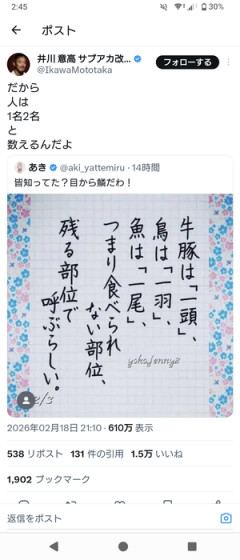 2:45
30%
ポスト
井川 意高 サブアカ改...
@IkawaMototaka
フォローする
だから
人は
1名2名
と
数えるんだよ
あき @aki_yattemiru · 14時間
皆知ってた？目から鱗だわ！
牛豚は「一頭」、
鳥は「一羽」、
魚は「一尾」、
つまり食べられ
ない部位、
残る部位で
呼ぶらしい。
2/3
2026年02月18日 21:10 · 610万 表示
538 リポスト 131 件の引用 1.5万 いいね
1,902 ブックマーク
返信をポスト